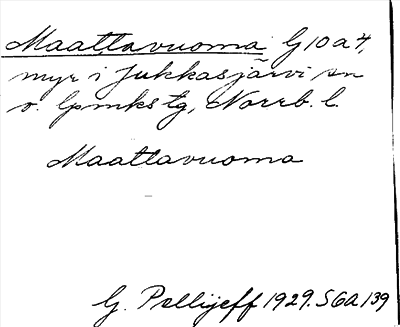 Maattavuoma G10a4,
myr i Jukkasjärvi sn
o. lpmks tg, Norrb. l.
Maattavuoma
G. Pellijeff 1929. SGA 139